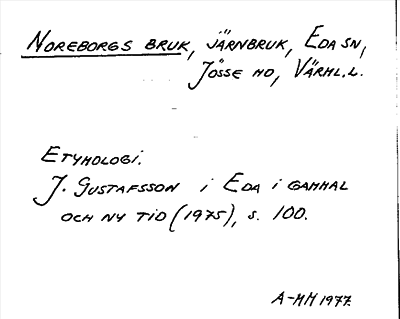 NOREBORGS BRUK, JÄRNBRUK, EDA SN,
JÖSSE HD, VÄRML.L.
ETYMOLOGI.
J. GUSTAFSSON i EDA i GAMMAL
OCH NY TID (1975), s. 100.
A-MM 1977.